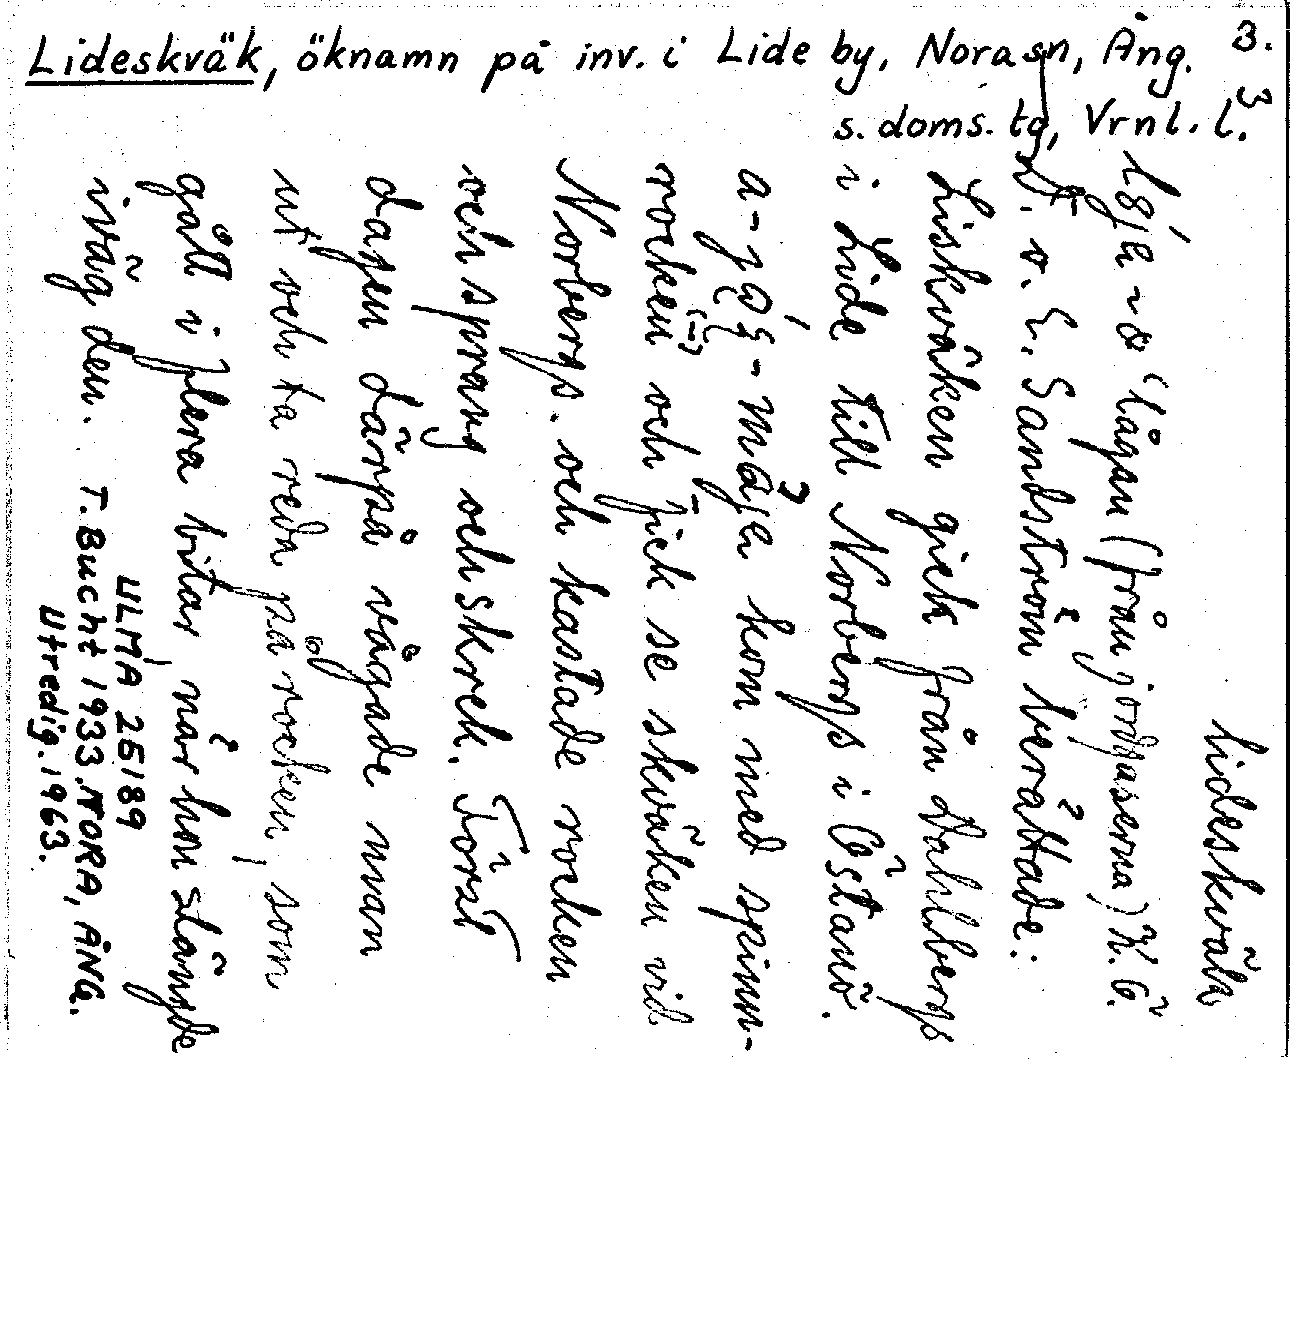 Lideskväk, öknamn på inv. i Lide by, Nora sn, Ång. 3.
s. doms. tg, Vrnl. l. 3
Lideskväk
"lågan (från jordåserna) K.Ö.
o. E. Sandström berättade:
Liskväken gick från Dahlbergs
i Lide till Norbergs i Östanö.
kom med spinn-
rocken och fick se skväken vid
Norbergs. och kastade rocken
och sprang och skrek. Först
dagen därpå vågade man
ut och ta reda på rocken, som
gått i flera bitar, når hon slängde
iväg den. T. Bucht 1933. NORA, ÅNG.
ULMA 25189
Utredig. 1963.